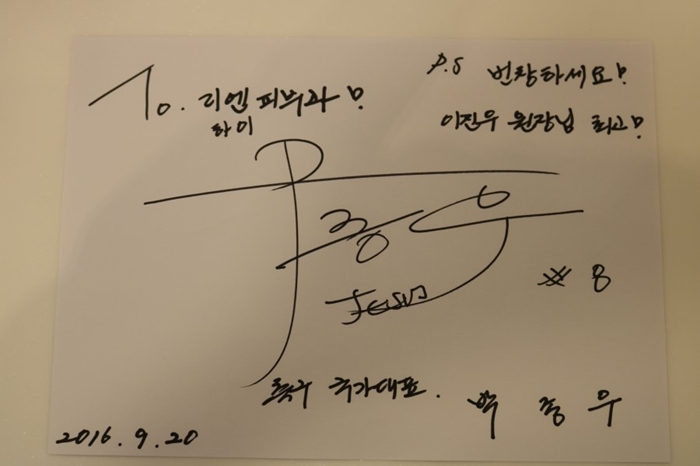 To. 리엔피부과!
하이
P.S 번창하세요!
이진우 원장님 최고!
Jesus
# 8
축구 국가대표.
박 종 우
2016.9.20